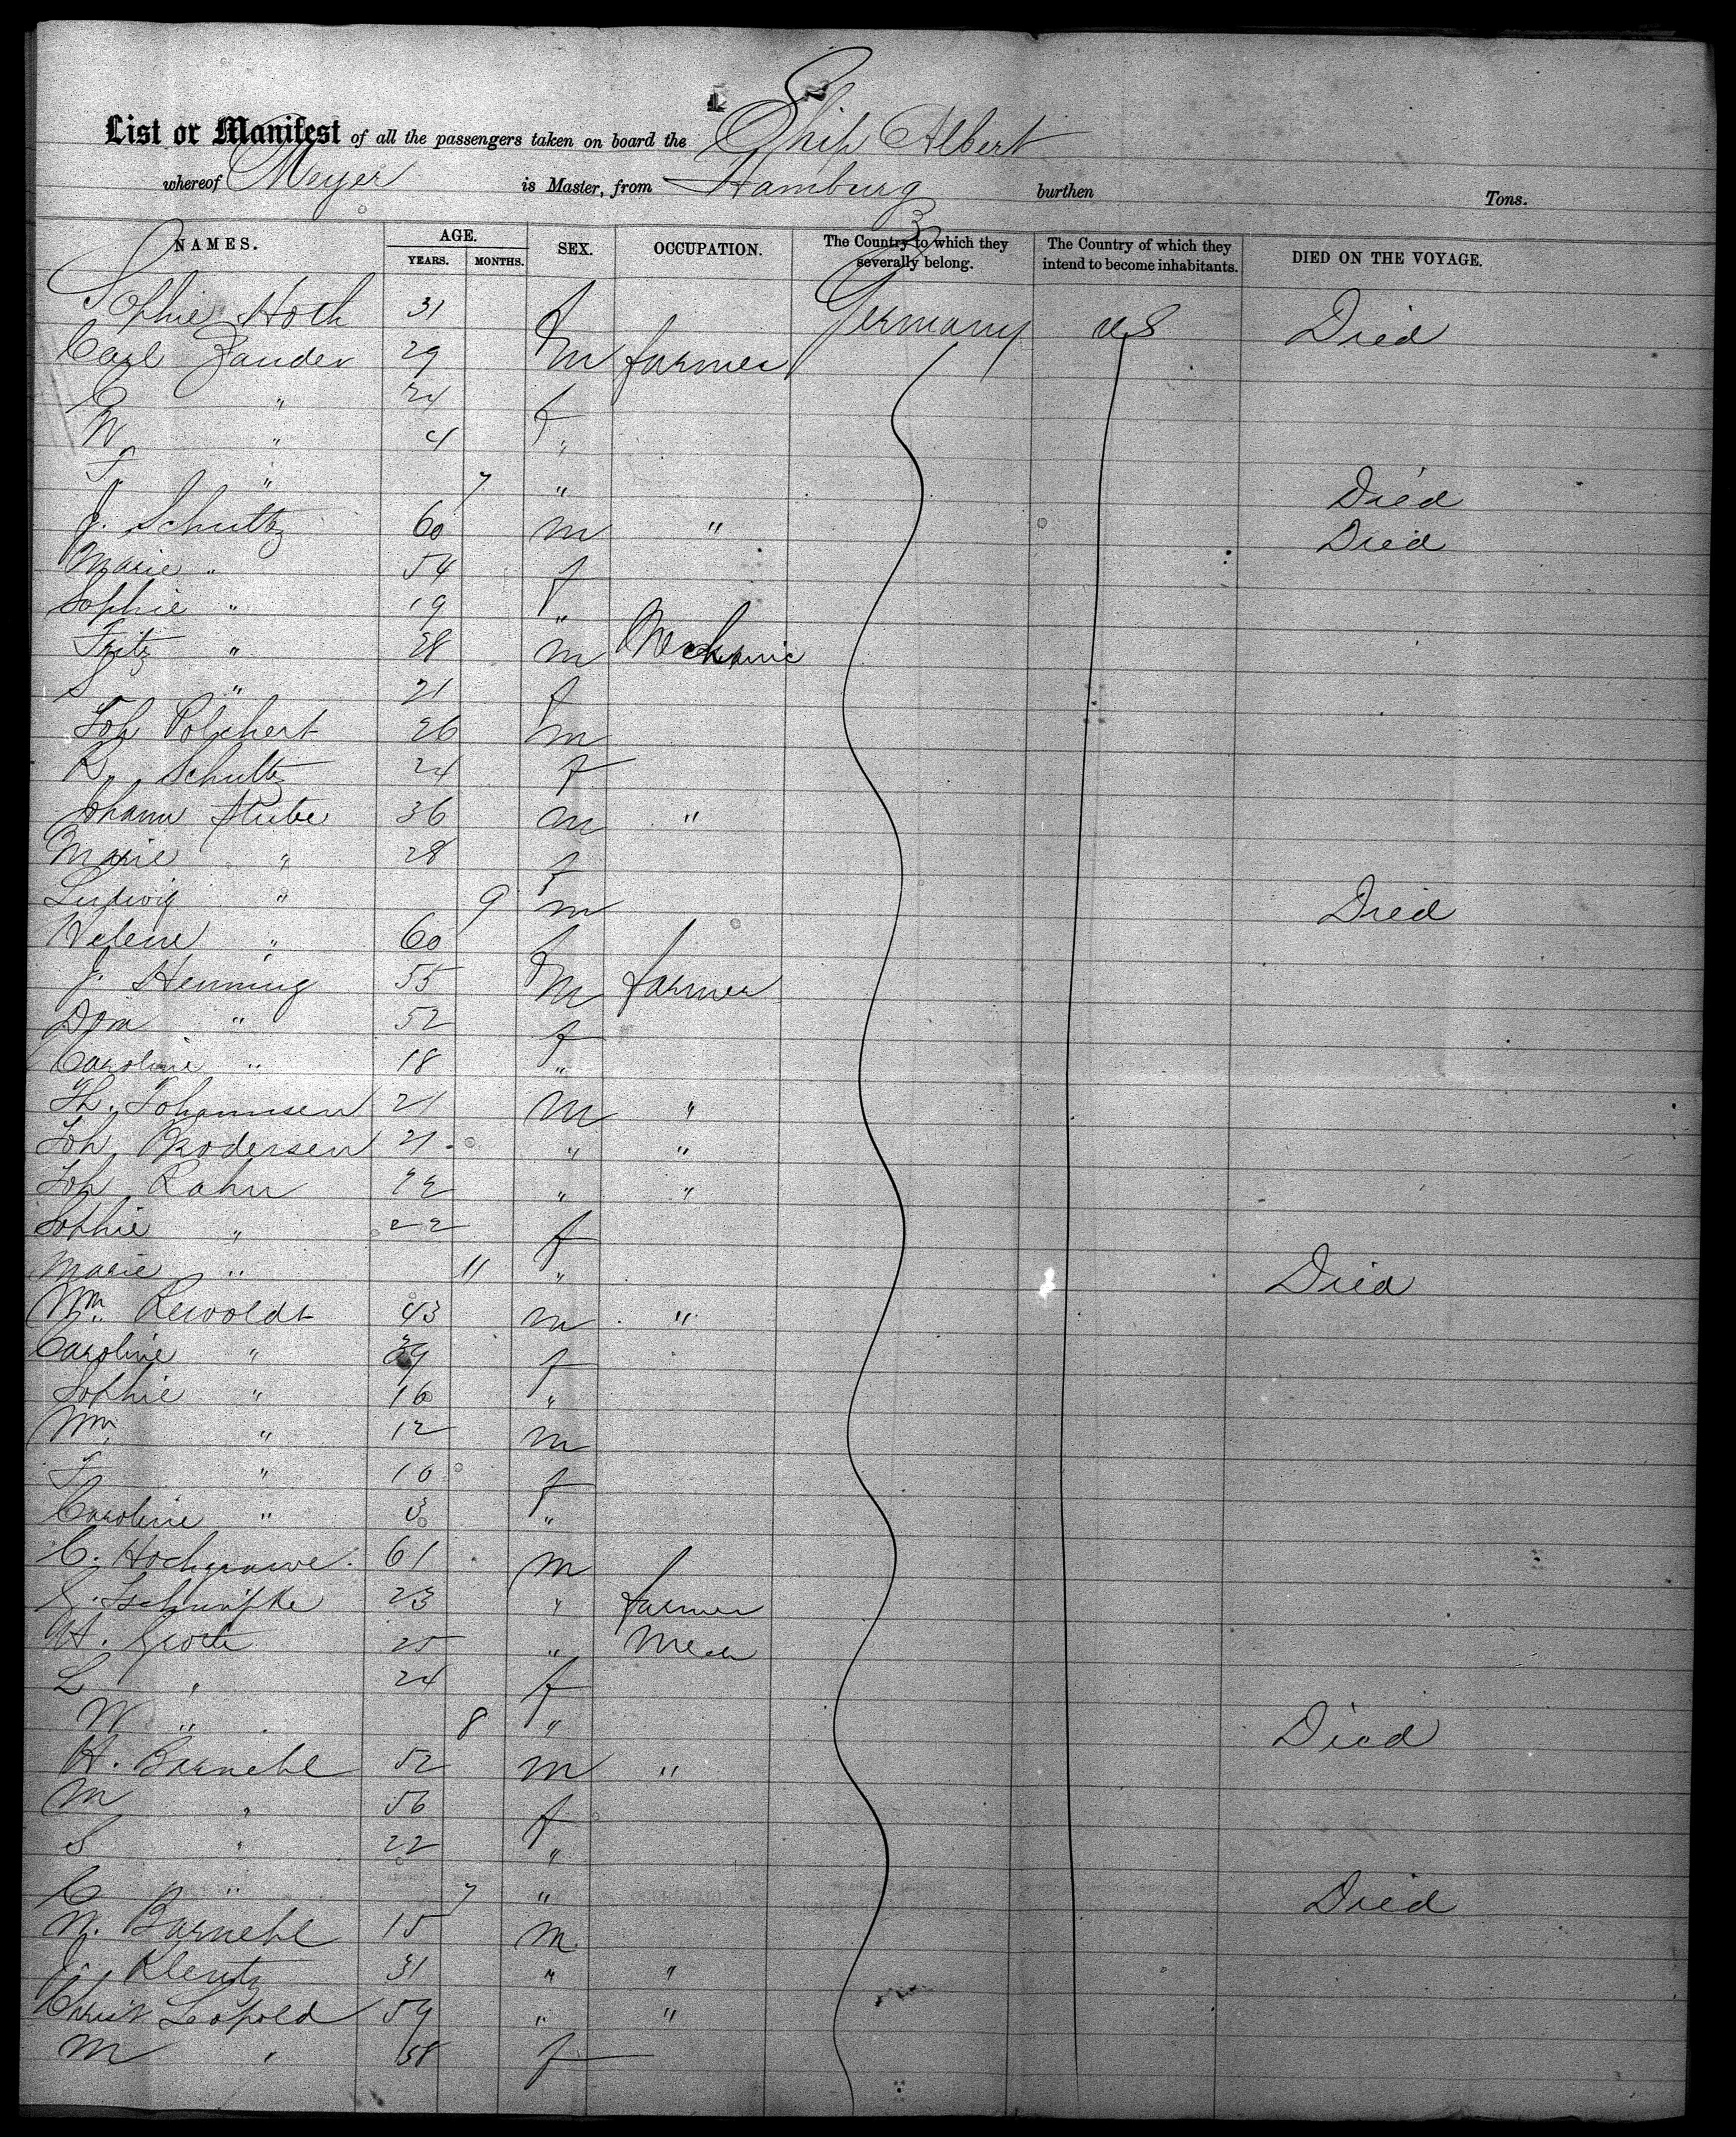 List or Manifest of all the passengers taken on board the Ship Albert
whereof Meyer is Master, from Hamburg burthen Tons.
NAMES. AGE. SEX. OCCUPATION. The Country to which they severally belong. The Country of which they intend to become inhabitants. DIED ON THE VOYAGE.
YEARS. MONTHS.
Sophie Hoth 31 f Germany US Died
Carl Zander 29 m farmer
" 24 f
W " 4 "
" 7 " Died
J. Schultz 60 m " Died
Marie " 54 f
Sophie " 19 "
Fritz " 28 m Mechanic
S " 21 f
Joh Polchert 26 m
Schultz 24 f
Johann Stube 36 m "
Marie " 28 f
Ludwig " 9 m Died
Helene " 60 f
J. Henning 55 m farmer
Dora " 52 f
Caroline " 18 "
Th. Johannsen 21 m "
Joh. Brodersen 21 " "
Joh Rahn 22 " "
Sophie " 22 f
Marie " 11 " Died
Wm. Rewoldt 43 m "
Caroline " 39 f
Sophie " 16 "
Wm. " 12 m
" 10 f
Caroline " 3 "
C. Hochgrawe 61 m
23 " farmer
H. Grote 25 " Mech
L " 24 f
W " 8 " Died
H. Barnehl 52 m "
M " 56 f
S " 22 "
C " 7 " Died
Barnehl 15 m
J. Klentz 31 " "
Christ Leopold 59 " "
M " 58 f